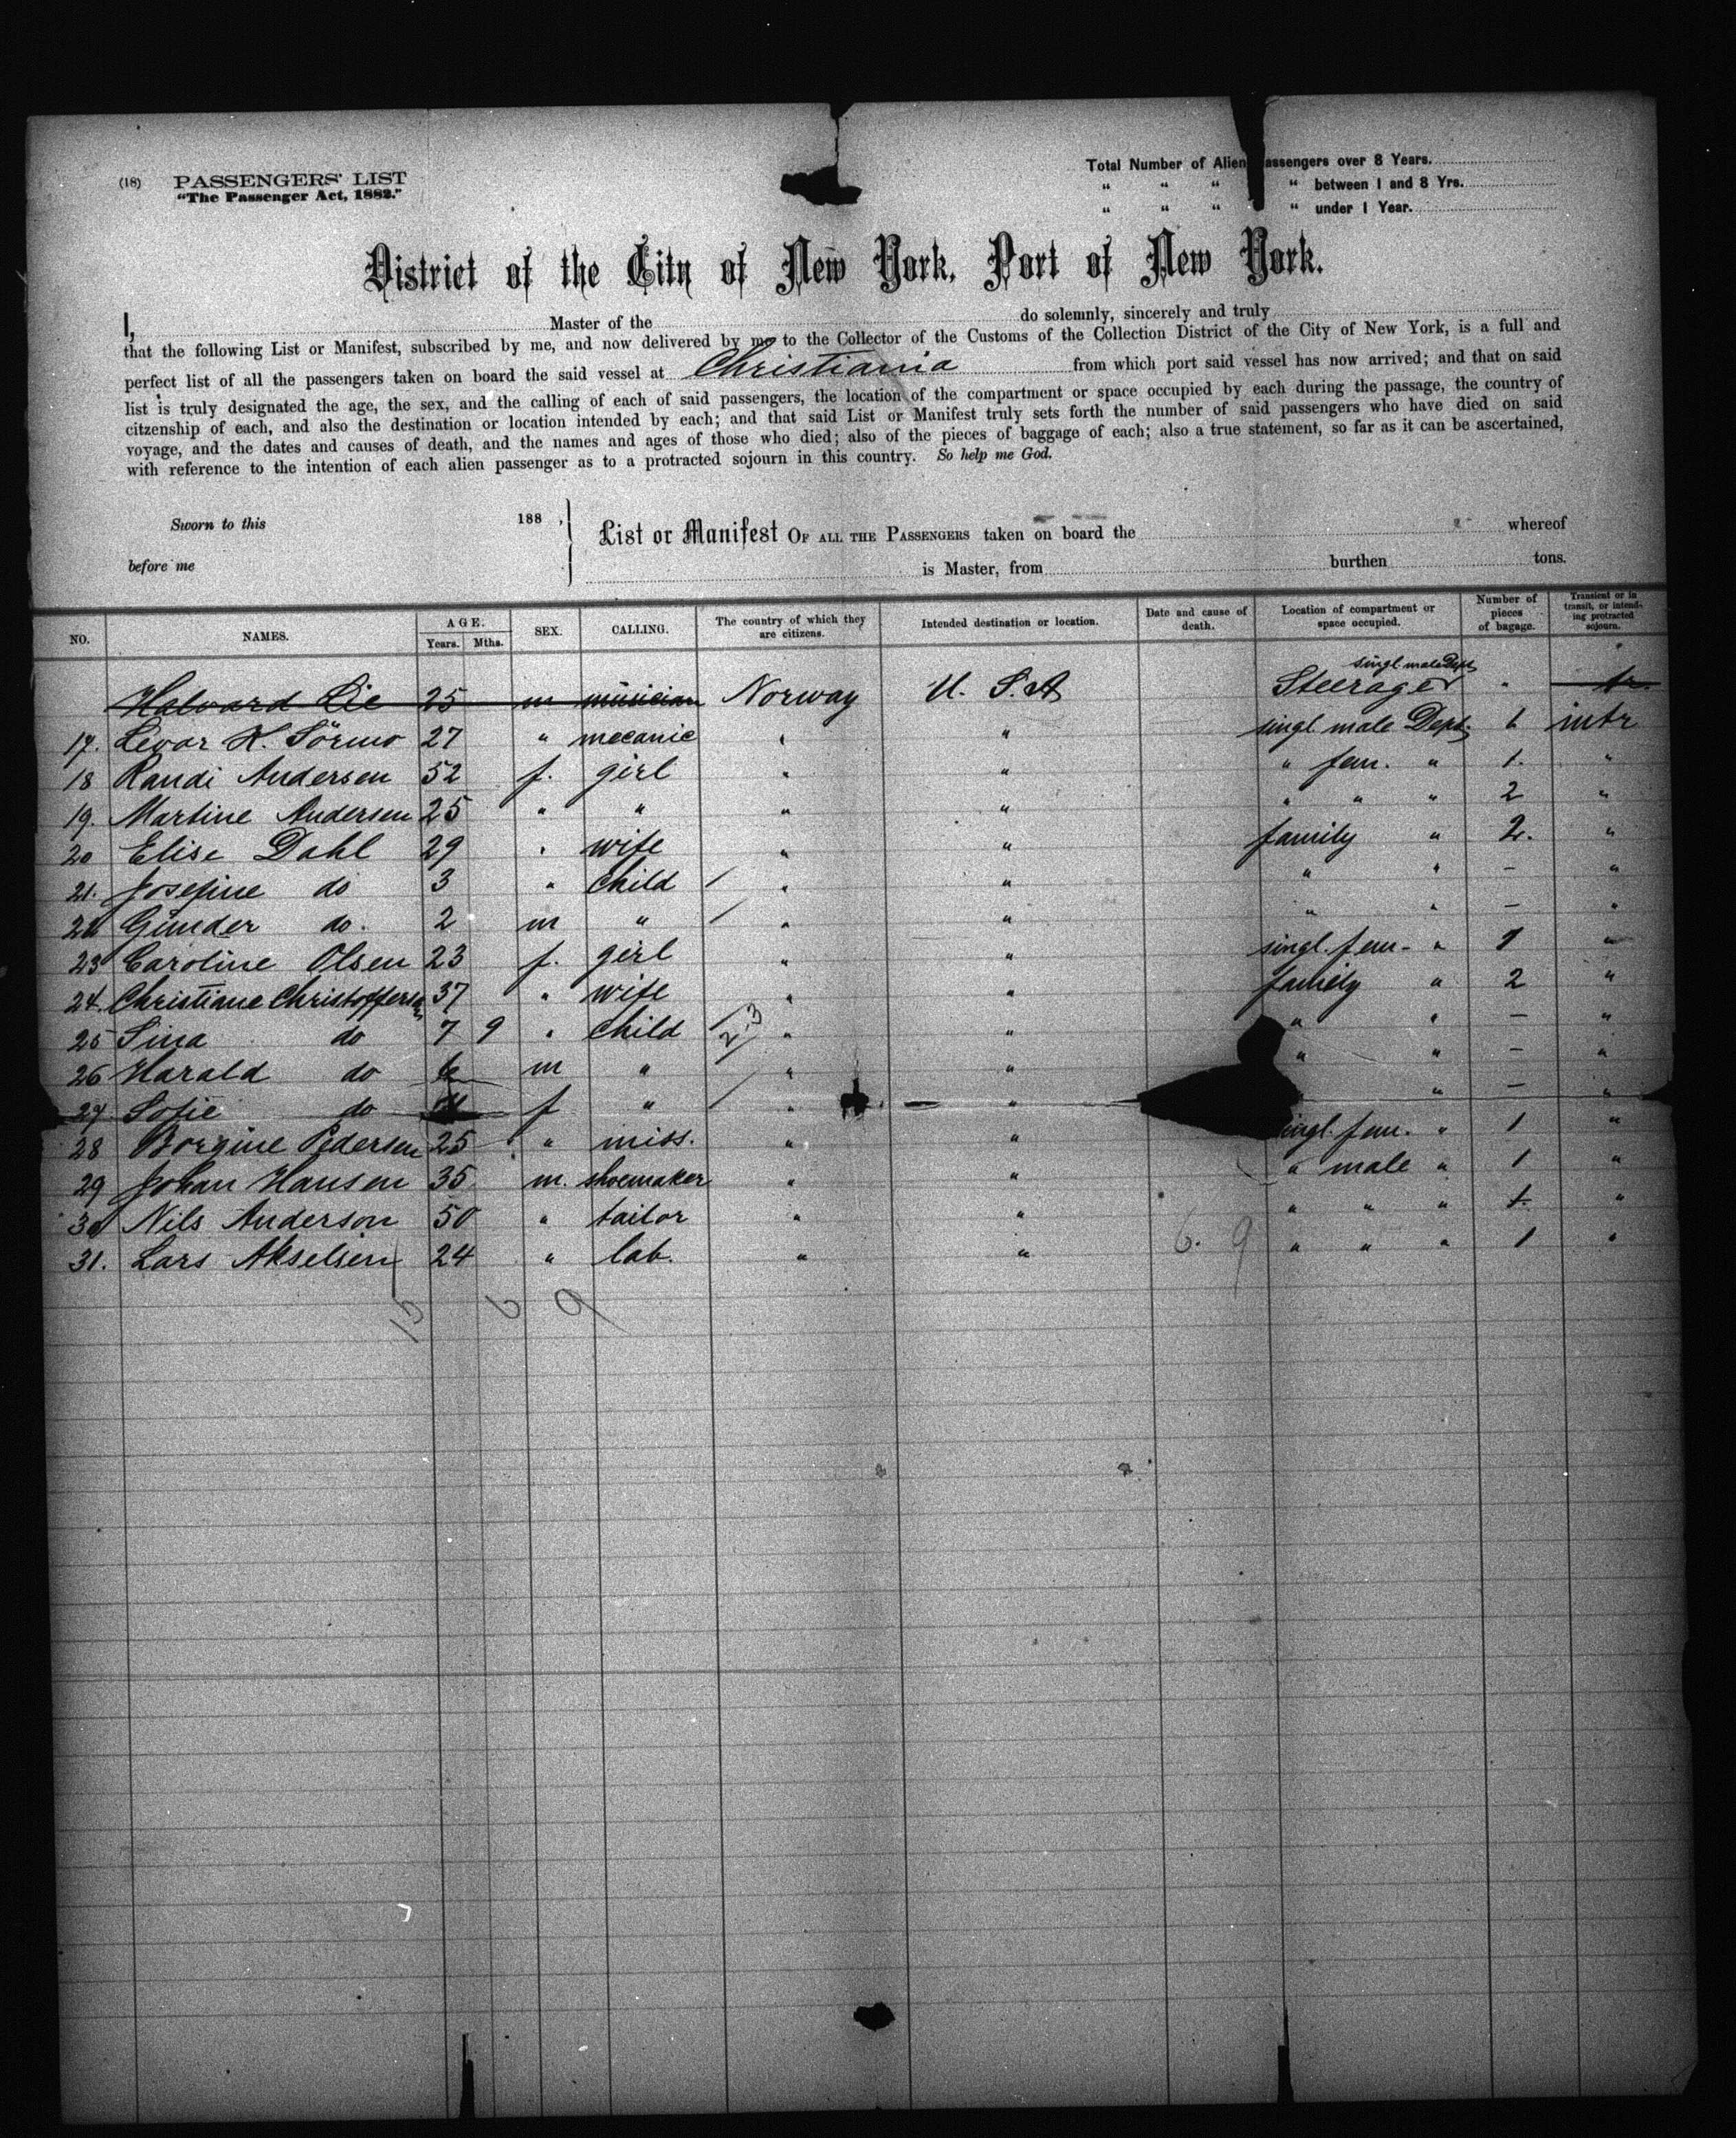 (18) PASSENGERS' LIST
"The Passenger Act, 1882."
Total Number of Alien assengers over 8 Years.
" " " " between 1 and 8 Yrs.
" " " " under 1 Year.
District of the City of New York, Port of New York.
I, Master of the do solemnly, sincerely and truly
that the following List or Manifest, subscribed by me, and now delivered by me to the Collector of the Customs of the Collection District of the City of New York, is a full and
perfect list of all the passengers taken on board the said vessel at Christiania from which port said vessel has now arrived; and that on said
list is truly designated the age, the sex, and the calling of each of said passengers, the location of the compartment or space occupied by each during the passage, the country of
citzenship of each, and also the destination or location intended by each; and that said List or Manifest truly sets forth the number of said passengers who have died on said
voyage, and the dates and causes of death, and the names and ages of those who died; also of the pieces of baggage of each; also a true statement, so far as it can be ascertained,
with reference to the intention of each alien passenger as to a protracted sojourn in this country. So help me God.
Sworn to this 188 ,
before me
List or Manifest OF ALL THE PASSENGERS taken on board the whereof
is Master, from burthen tons.
NO. NAMES. AGE. Years. Mths. SEX. CALLING. The country of which they are citizens. Intended destination or location. Date and cause of death. Location of compartment or space occupied. Number of pieces of bagage. Transient or in transit, or intending protracted sojourn.
Halvard Lie 25 m musician Norway U. S. A Steerage singl male Dept " tr.
17. Levor K. Sörmo 27 " mecanic " " singl male Dept. 1 intr
18 Randi Andersen 52 f. girl " " " fem. " 1. "
19. Martine Andersen 25 " " " " " " " 2 "
20 Elise Dahl 29 " wife " " family " 2. "
21. Josefine do 3 " child / " " " " – "
22 Gunder do. 2 m " / " " " " – "
23 Caroline Olsen 23 f. girl " " singl. fem. " 1 "
24. Christiane Christoffersen 37 " wife " " family " 2 "
25 Sina do 7 9 " child " " " " – "
26 Harald do 6 m " " " " " – "
27. Sofie do f " / " " " – "
28 Borgine Pedersen 25 " miss. " " singl. fem. " 1 "
29 Johan Hansen 35 m. shoemaker " " " male " 1 "
30 Nils Anderson 50 " tailor " " " " " 1. "
31. Lars Akselsen 24 " lab. " " 6. 9 " " " 1 "
6 9